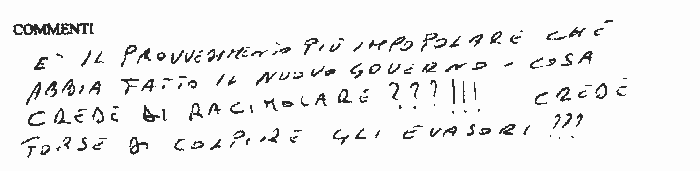 COMMENTI
E' IL PROVVEDIMENTO PIÙ IMPOPOLARE CHE
ABBIA FATTO IL NUOVO GOVERNO - COSA
CREDE DI RACIMOLARE ???!!! CREDE
FORSE DI COLPIRE GLI EVASORI ???